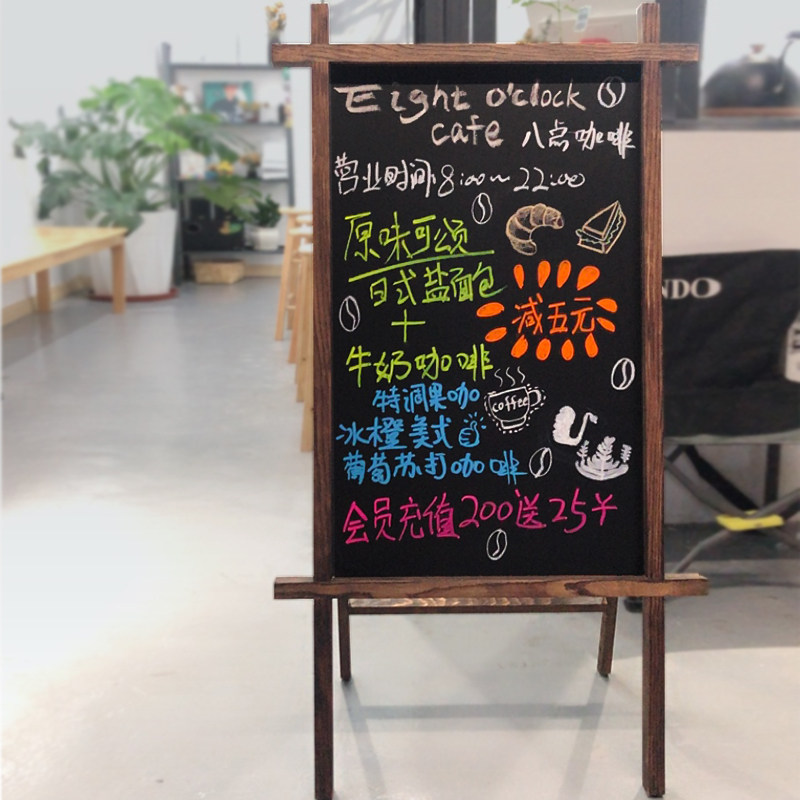 Eight o'clock
cafe 八点咖啡
营业时间 8:00~22:00
原味可颂
日式盐面包
+
减五元
牛奶咖啡
特调果咖
coffee
冰橙美式
葡萄苏打咖啡
会员充值200送25羊
NDO